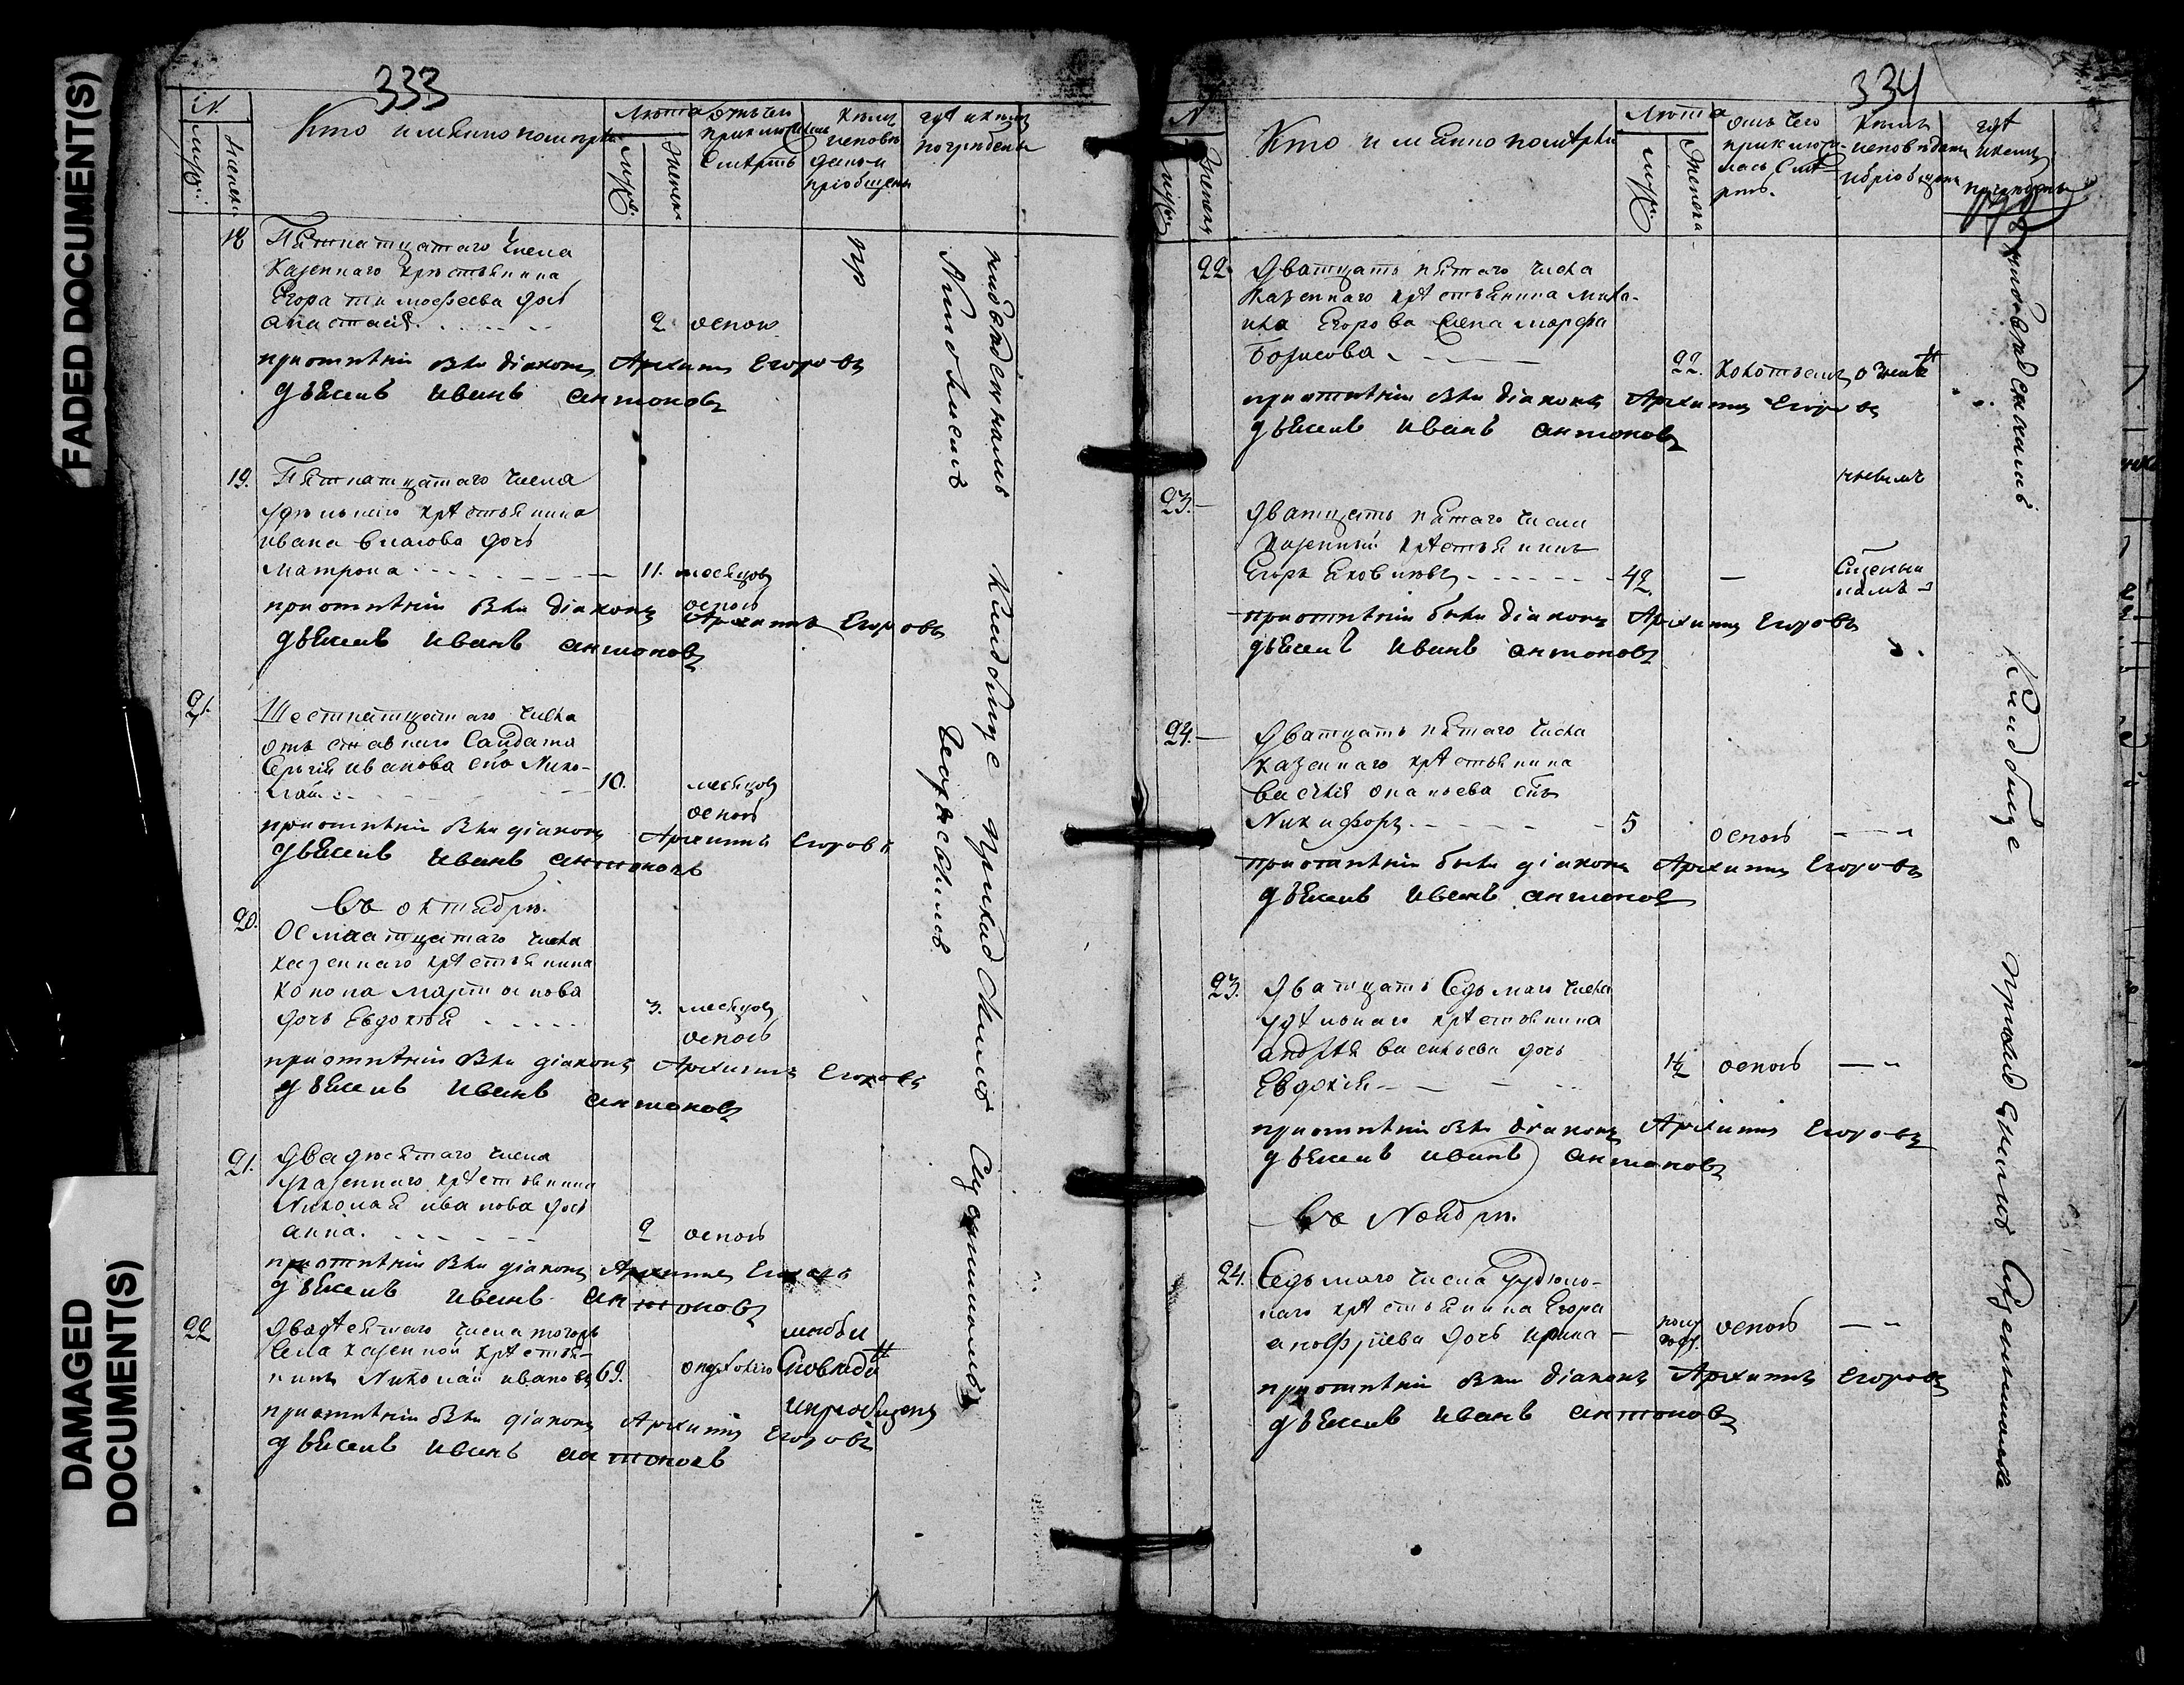 FADED DOCUMENT(S)
DAMAGED
DOCUMENT(S)
333
N.
Кто имянно помѣрли
Лѣта
Отъ чего
приключилась
Смѣрть
Кѣмъ
исповѣ
даны и
пріобщены
гдѣ и кѣмъ
погребены
18
Пятнатцатаго числа
Казеннаго крѣстьянина
Егора тимофеева дочь
анастасія
2
оспою
приотпѣтіи были діаконъ Архипъ Егоровъ
дьячекъ Иванъ антоновъ
19.
Пятнатцатаго числа
удѣльнаго крѣстьянина
ивана власова дочь
матрона
11. месяцовъ
оспою
приотпѣтіи были діаконъ Архипъ Егоровъ
дьячекъ Иванъ антоновъ
21.
Шестнатцатаго числа
отъставнаго Салдата
Сергія иванова снъ Нико-
лай
10.
месяцовъ
оспою
приотпѣтіи были діаконъ Архипъ Егоровъ
дьячекъ Иванъ антоновъ
Въ октябрѣ.
20.
Осмнатцатаго числа
казеннаго крѣстьянина
Конона мартынова
дочь Евдокія
3. месяцовъ
оспою
приотпѣтіи были діаконъ Архипъ Егоровъ
дьячекъ Иванъ антоновъ
21.
Двадесятаго числа
казеннаго крѣстьянина
Николая иванова дочь
анна.
2
оспою
приотпѣтіи были діаконъ Архипъ Егоровъ
дьячекъ Иванъ антоновъ
22
Двадесятаго числа тогожъ
Села казенной крѣстья-
нинъ Николай ивановъ
69.
мною
и пріобщенъ
приотпѣтіи были діаконъ Архипъ Егоровъ
дьячекъ Иванъ антоновъ
на кладбище приходскимъ Священникомъ
334
N
Кто имянно помѣрли
Лѣта
отъ чего
приключи-
лась Смѣ-
рть.
Кѣмъ
исповѣданы
и пріобщены
гдѣ
и кемъ
погребены
22.
Дватцать пятаго числа
Казеннаго крѣстьянина миха-
ила Егорова жена марфа
Борисова
22.
приотпѣтіи были діаконъ Архипъ Егоровъ
дьячекъ Иванъ антоновъ
23.
Дватцать пятаго числа
Казенный крѣстьянинъ
Егоръ Яковлевъ
42.
Священни
комъ
приотпѣтіи были діаконъ Архипъ Егоровъ
дьячекъ Иванъ антоновъ
24.
Дватцать пятаго числа
казеннаго крѣстьянина
василія ананьева снъ
Никифоръ
5
оспою
приотпѣтіи были діаконъ Архипъ Егоровъ
дьячекъ Иванъ антоновъ
23.
Дватцать Седьмаго числа
удѣльнаго крѣстьянина
андрѣя васильева дочь
Евдокія
оспою
приотпѣтіи были діаконъ Архипъ Егоровъ
дьячекъ Иванъ антоновъ
Въ Ноябрѣ.
24.
Седьмаго числа удѣль-
наго крѣстьянина Егора
анофріева дочь ирина
полу
год.
оспою
приотпѣтіи были діаконъ Архипъ Егоровъ
дьячекъ Иванъ антоновъ
кладбище приходскимъ Священникомъ